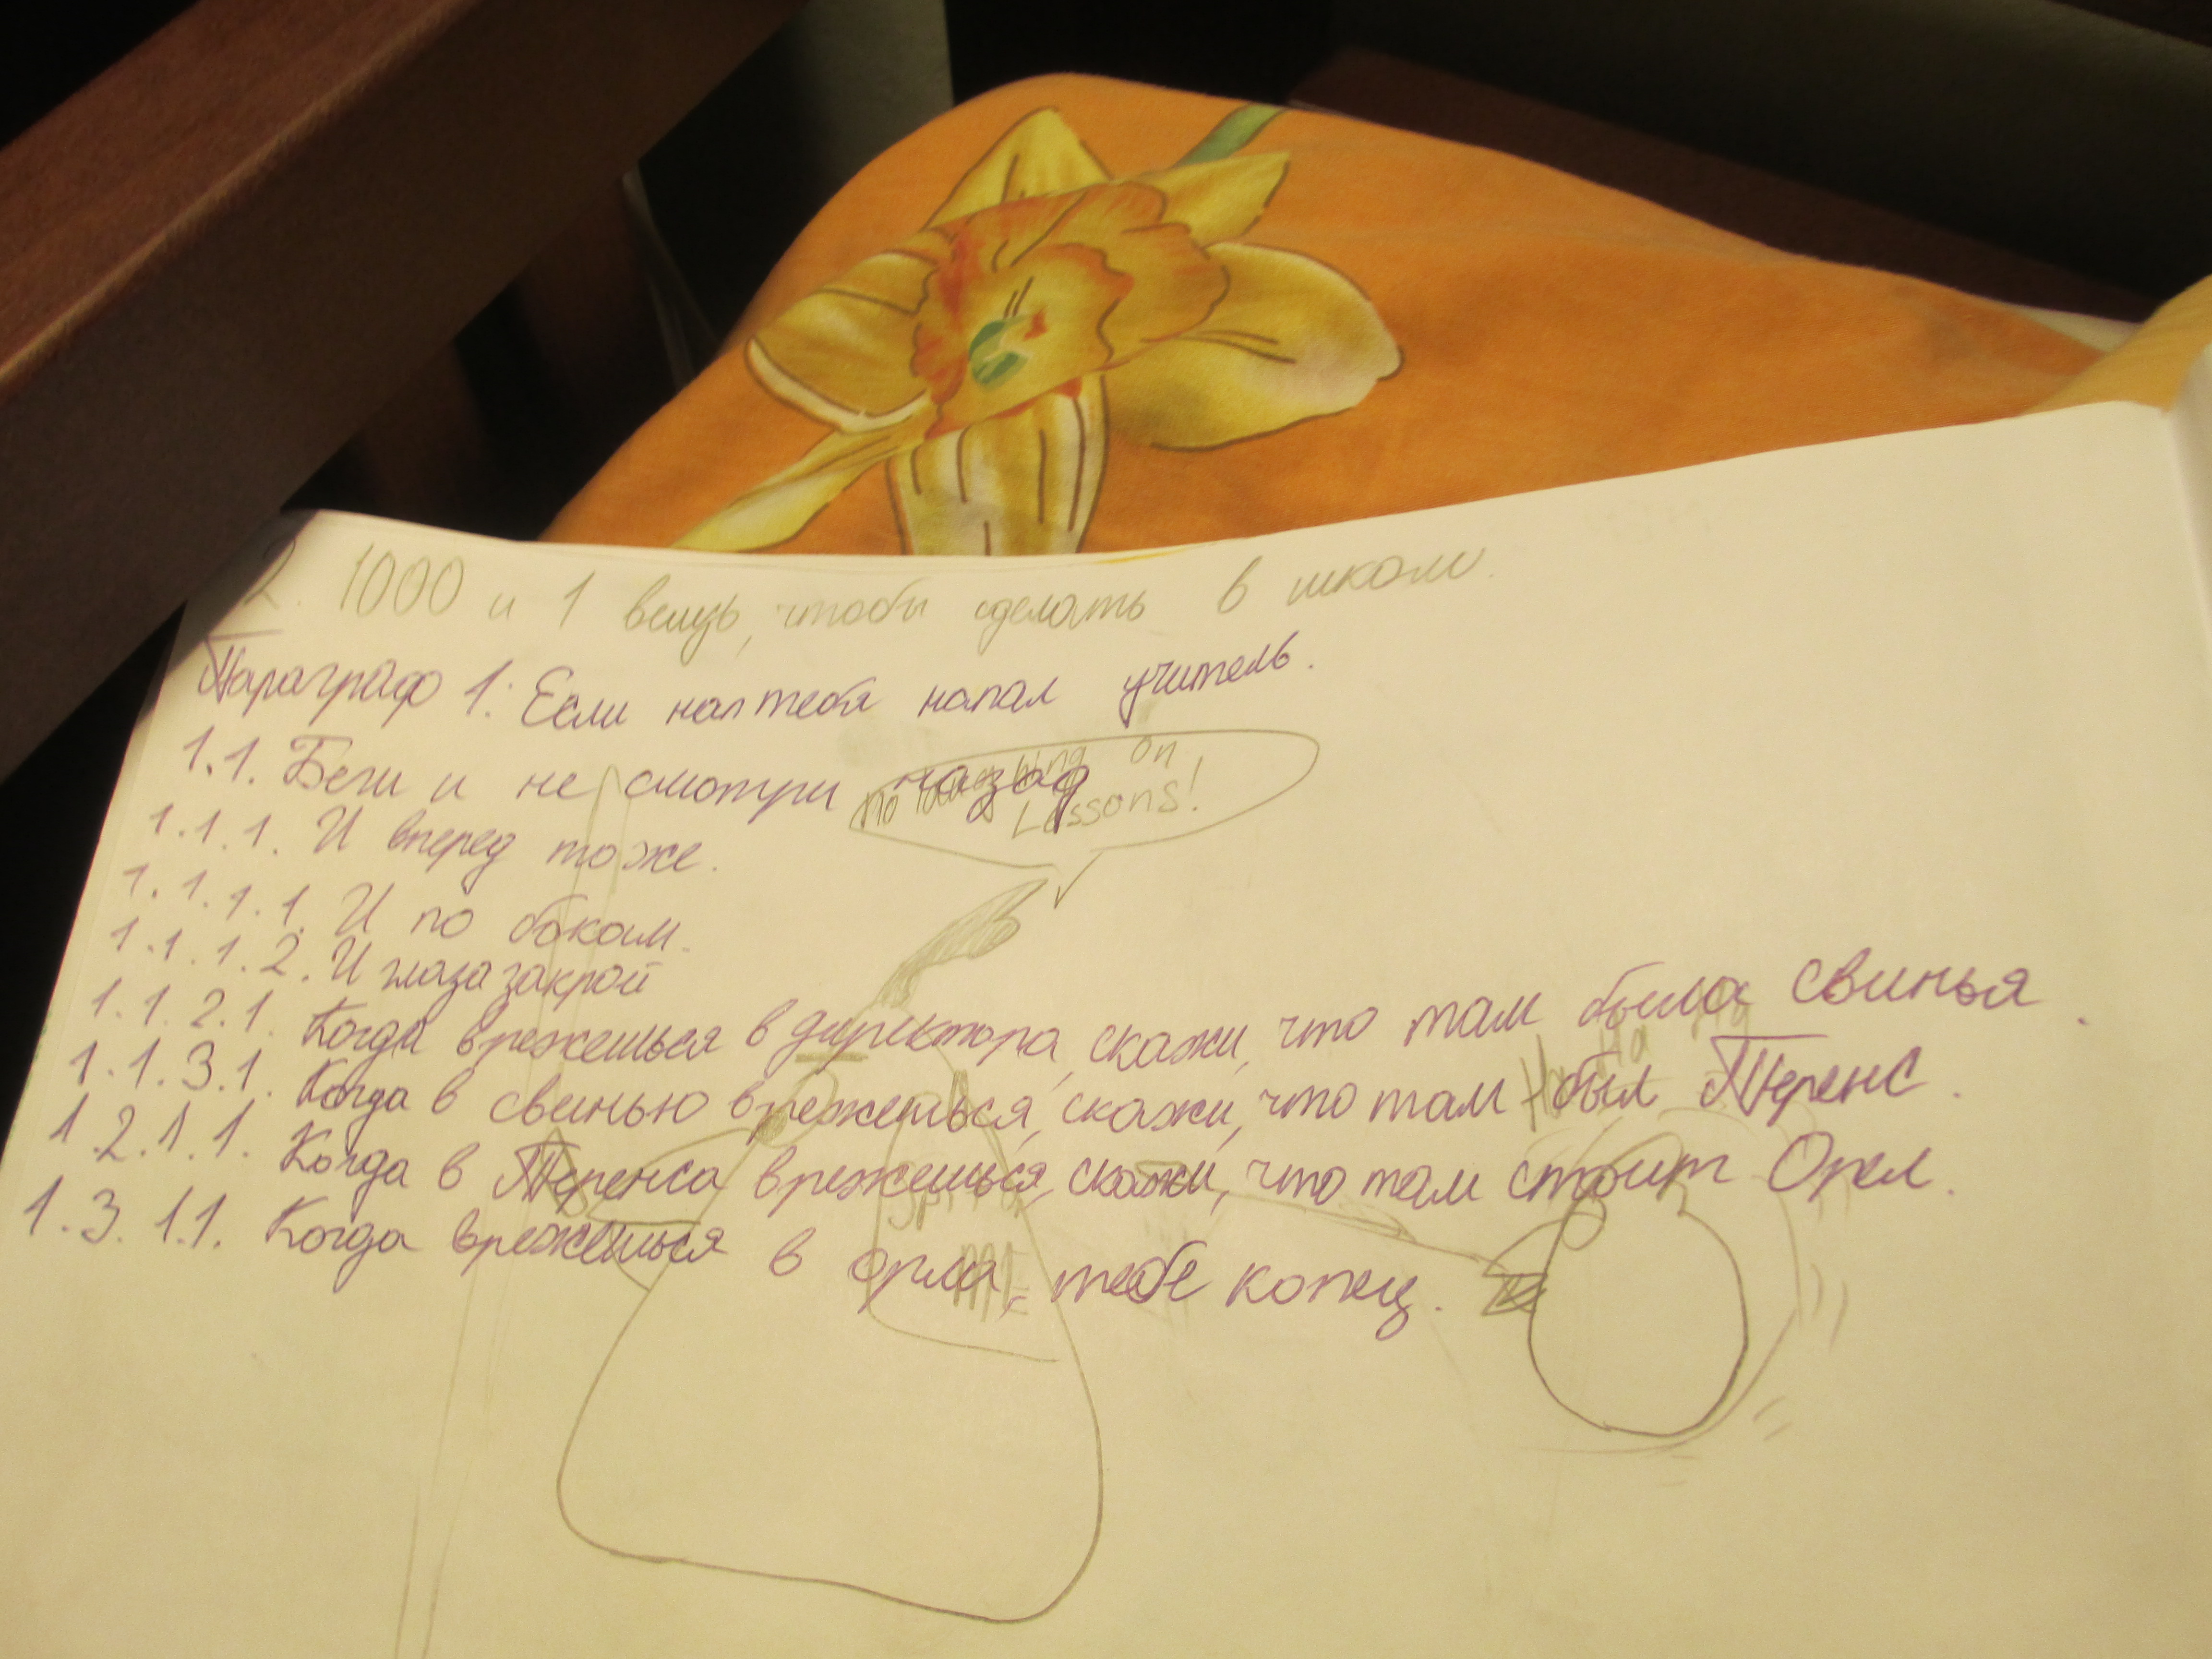 2. 1000 и 1 вещь, чтобы сделать в школе.
Параграф 1: Если на тебя напал учитель.
1.1. Беги и не смотри назад
No laughing on
Lessons!
1.1.1. И вперед тоже.
1.1.1.1. И по бокам.
1.1.1.2. И глаза закрой
1.1.2.1. Когда врежешься в директора, скажи, что там была свинья.
Ha Ha Ha
1.1.3.1. Когда в свинью врежешься, скажи, что там был Теренс.
1.2.1.1. Когда в Теренса врежешься, скажи, что там стоит Орел.
1.3.1.1. Когда врежешься в орла, тебе конец.
ME